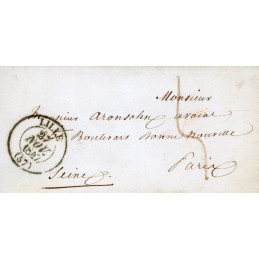 Monsieur
Monsieur Aronsohn avocat
Boulevart Bonne Nouvelle
Paris
Seine
LILLE
NOV.
(57)
5